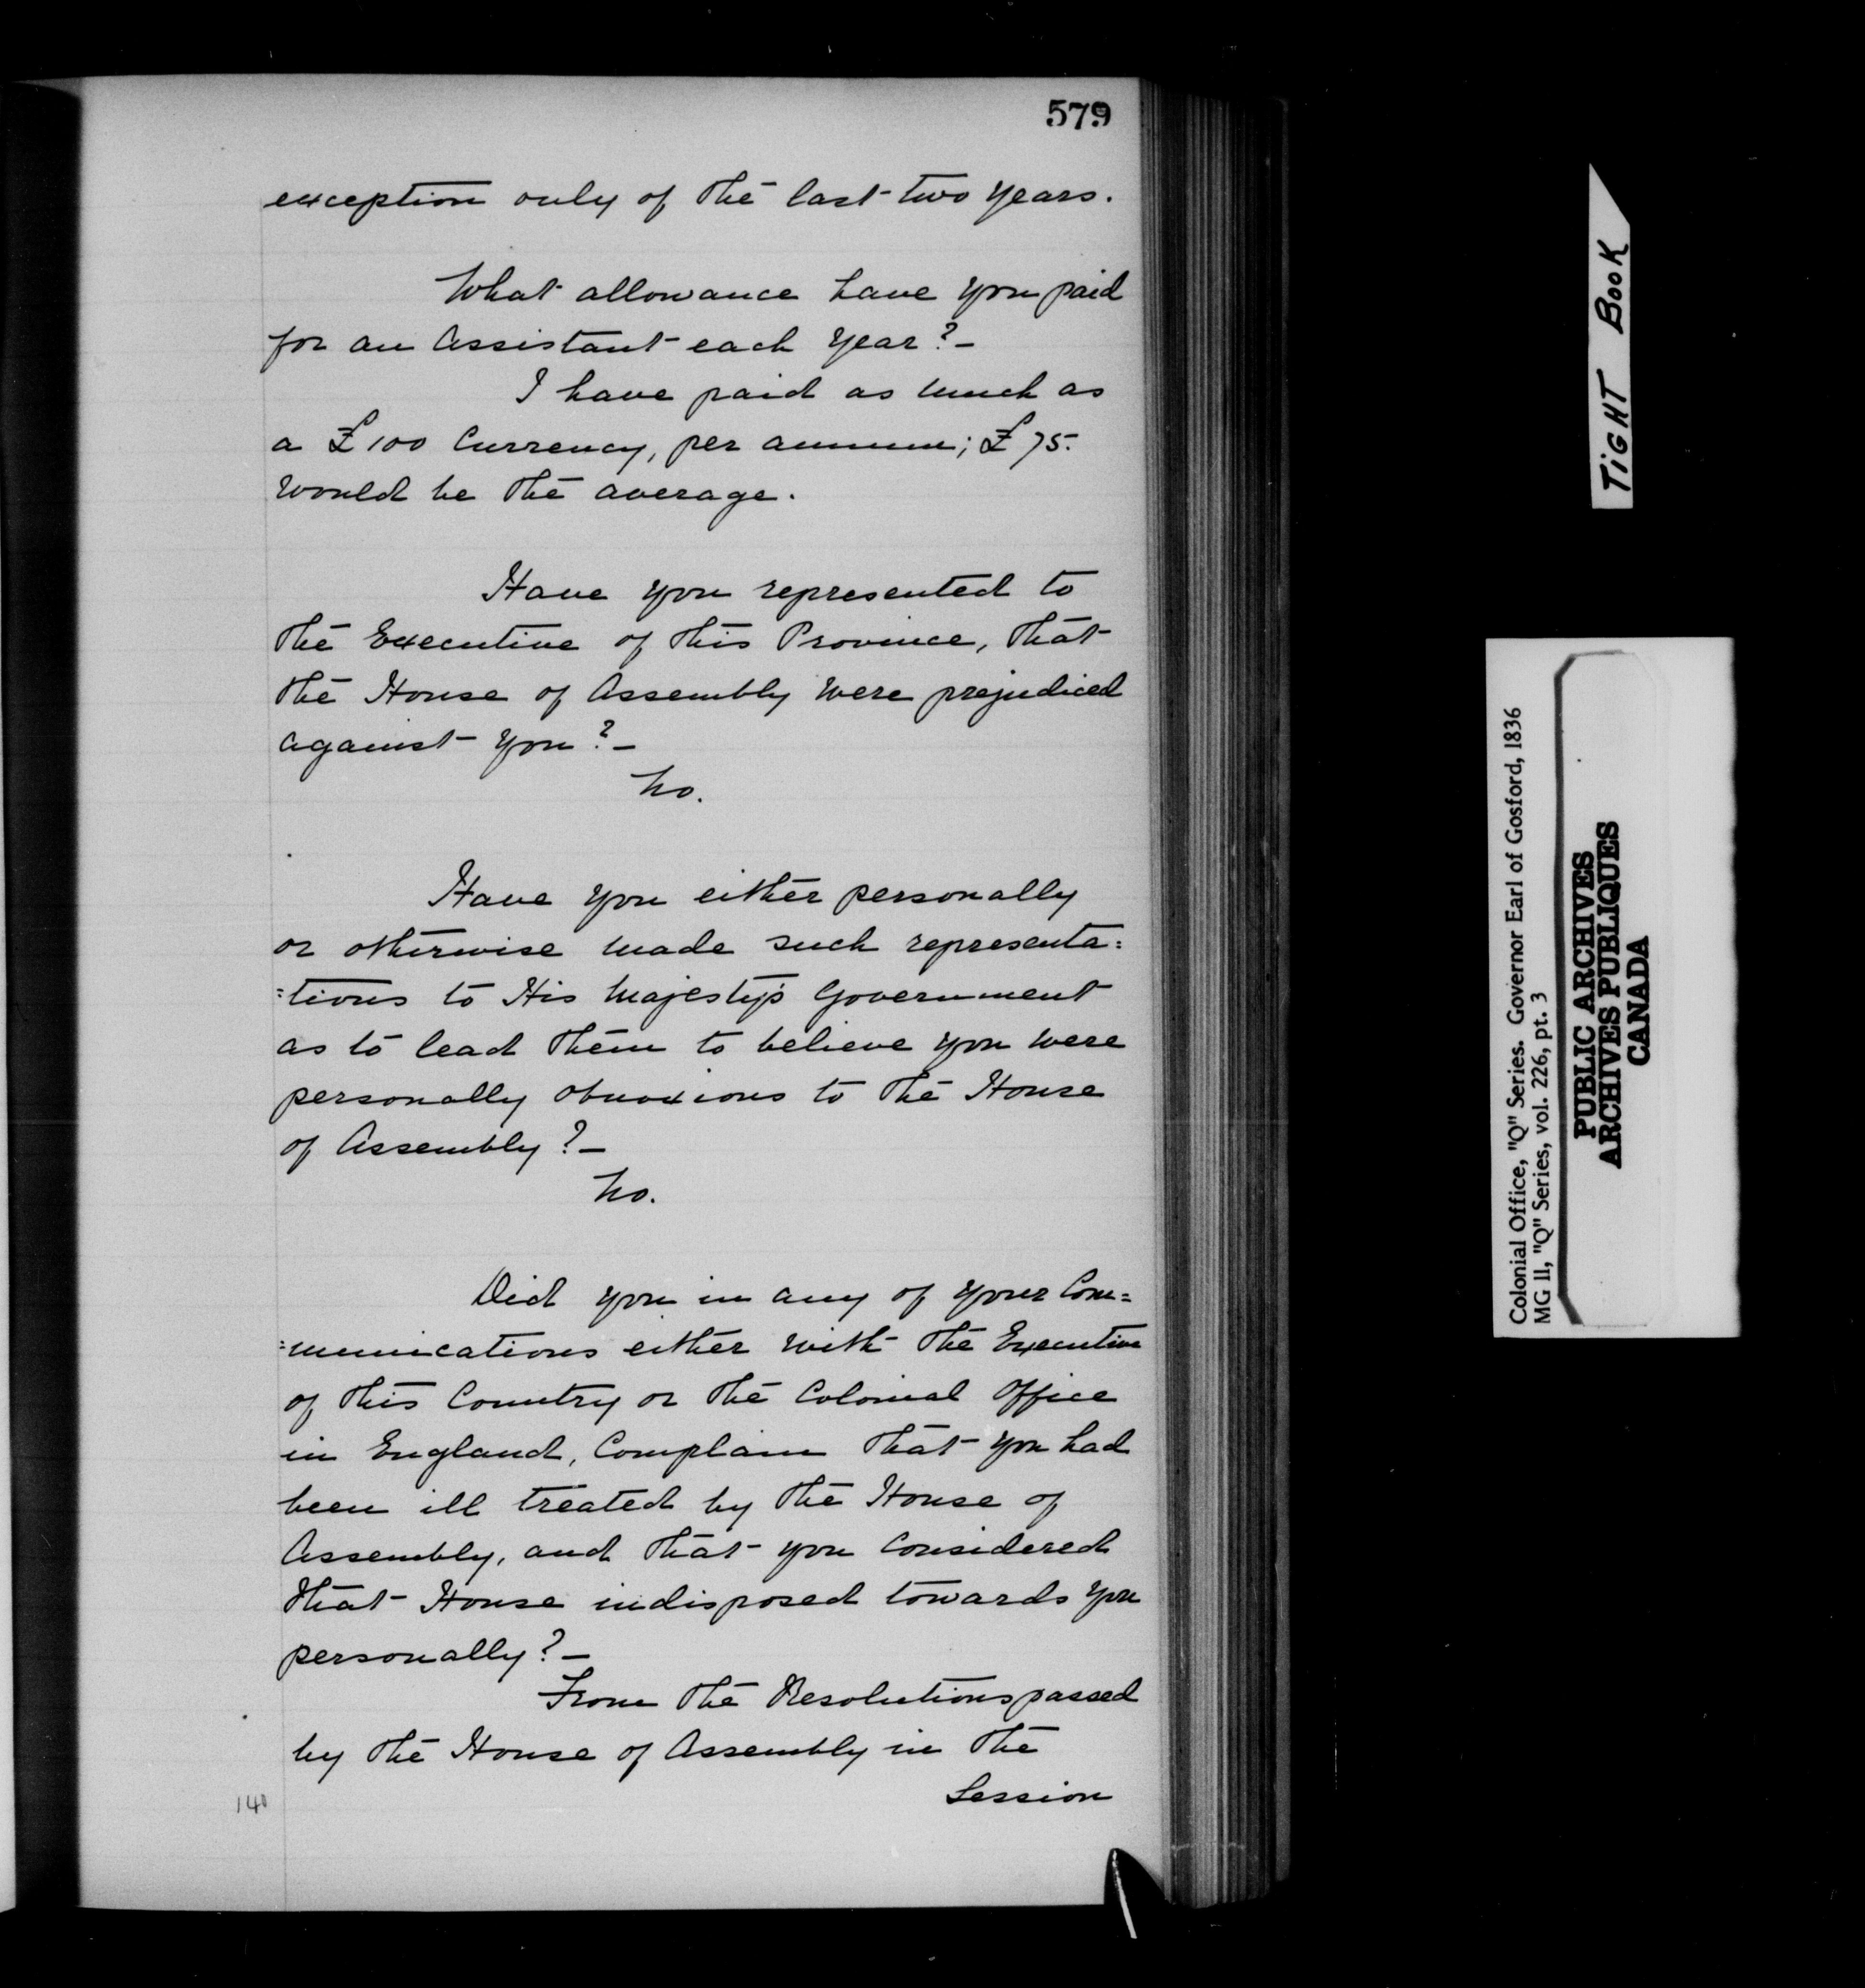 579
exception only of the last two years.
What allowance have you paid
for an Assistant each year?—
I have paid as much as
a £100 Currency, per annum; £75.
would be the average.
Have you represented to
the Executive of this Province, that
the House of Assembly were prejudiced
against you?—
No.
Have you either personally
or otherwise made such representa=
=tions to His Majesty's Government
as to lead them to believe you were
personally obnoxious to the House
of Assembly?—
No.
Did you in any of your Com=
=munications either with the Executive
of this Country or the Colonial Office
in England, Complain that you had
been ill treated by the House of
Assembly, and that you Considered
that House indisposed towards you
personally?—
From the Resolutions passed
by the House of Assembly in the
Session
140
TIGHT BOOK
Colonial Office, "Q" Series. Governor Earl of Gosford, 1836
MG 11, "Q" Series, vol. 226, pt. 3
PUBLIC ARCHIVES
ARCHIVES PUBLIQUES
CANADA